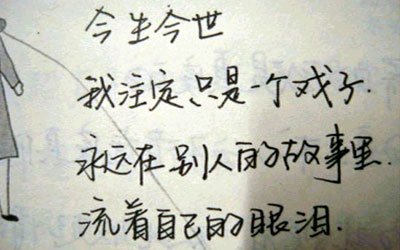 今生今世
我注定、只是一个戏子.
永远在别人的故事里.
流着自己的眼泪.